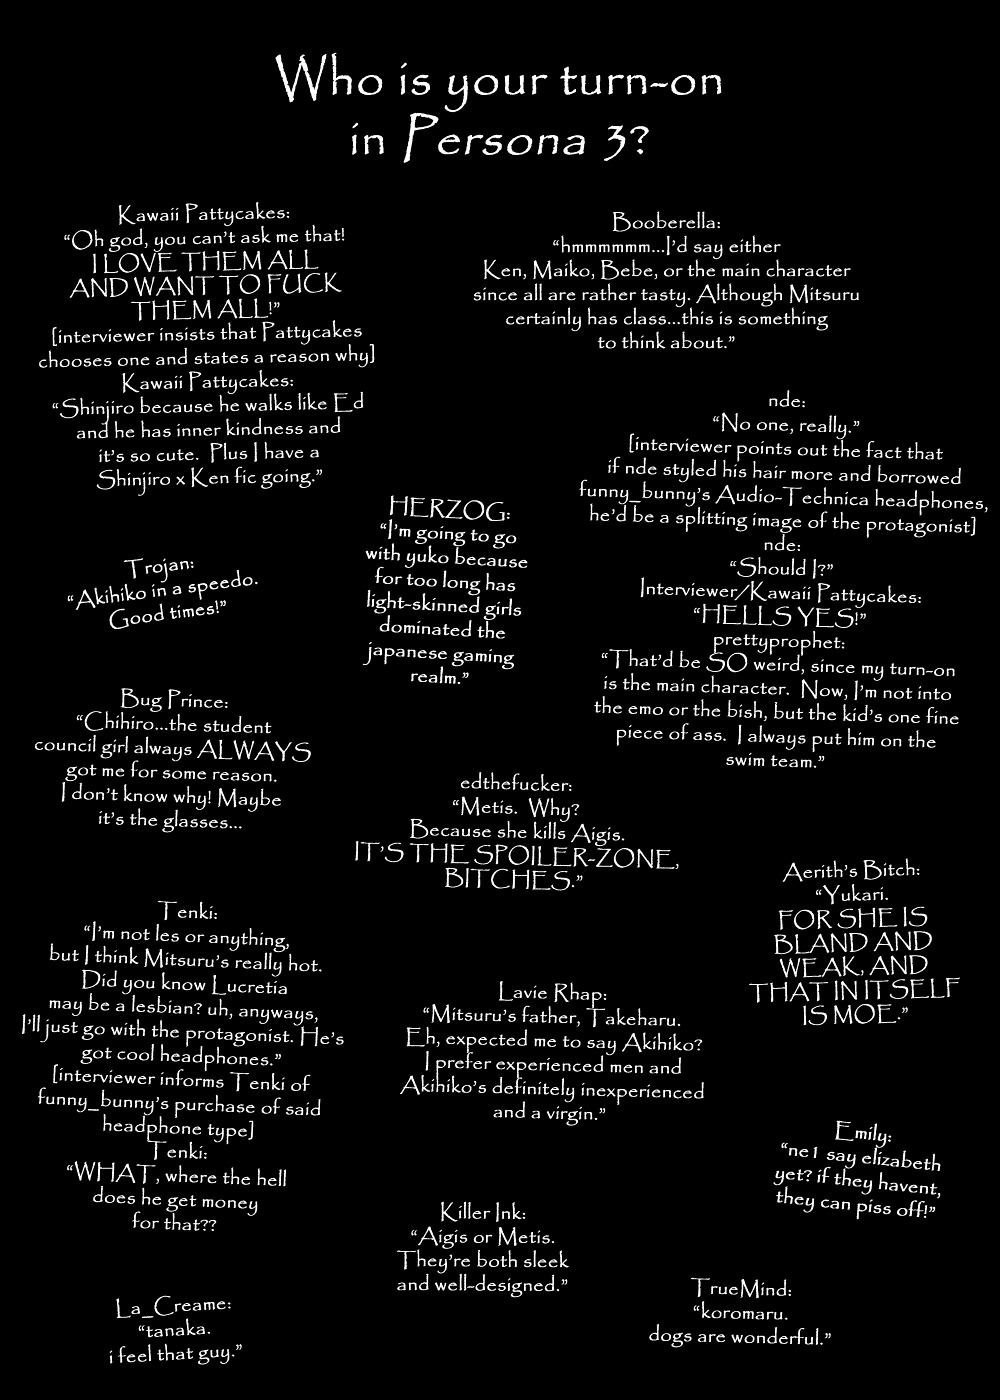 Who is your turn-on
in Persona 3?
Kawaii Pattycakes:
“Oh god, you can't ask me that!
I LOVE THEM ALL
AND WANT TO FUCK
THEM ALL!”
[interviewer insists that Pattycakes
chooses one and states a reason why]
Kawaii Pattycakes:
“Shinjiro because he walks like Ed
and he has inner kindness and
it's so cute. Plus I have a
Shinjiro x Ken fic going.”
Booberella:
“hmmmmmm...I'd say either
Ken, Maiko, Bebe, or the main character
since all are rather tasty. Although Mitsuru
certainly has class...this is something
to think about.”
nde:
“No one, really.”
[interviewer points out the fact that
if nde styled his hair more and borrowed
funny_bunny's Audio-Technica headphones,
he'd be a splitting image of the protagonist]
nde:
“Should I?”
Interviewer/Kawaii Pattycakes:
“HELLS YES!”
prettyprophet:
“That'd be SO weird, since my turn-on
is the main character. Now, I'm not into
the emo or the bish, but the kid's one fine
piece of ass. I always put him on the
swim team.”
HERZOG:
“I'm going to go
with yuko because
for too long has
light-skinned girls
dominated the
japanese gaming
realm.”
Trojan:
“Akihiko in a speedo.
Good times!”
Bug Prince:
“Chihiro...the student
council girl always ALWAYS
got me for some reason.
I don't know why! Maybe
it's the glasses...
edthefucker:
“Metis. Why?
Because she kills Aigis.
IT'S THE SPOILER-ZONE,
BITCHES.”
Aerith's Bitch:
“Yukari.
FOR SHE IS
BLAND AND
WEAK, AND
THAT IN ITSELF
IS MOE.”
Tenki:
“I'm not les or anything,
but I think Mitsuru's really hot.
Did you know Lucretia
may be a lesbian? uh, anyways,
I'll just go with the protagonist. He's
got cool headphones.”
[interviewer informs Tenki of
funny_bunny's purchase of said
headphone type]
Tenki:
“WHAT, where the hell
does he get money
for that??
Lavie Rhap:
“Mitsuru's father, Takeharu.
Eh, expected me to say Akihiko?
I prefer experienced men and
Akihiko's definitely inexperienced
and a virgin.”
Emily:
“ne1 say elizabeth
yet? if they havent,
they can piss off!”
Killer Ink:
“Aigis or Metis.
They're both sleek
and well-designed.”
TrueMind:
“koromaru.
dogs are wonderful.”
La_Creame:
“tanaka.
i feel that guy.”